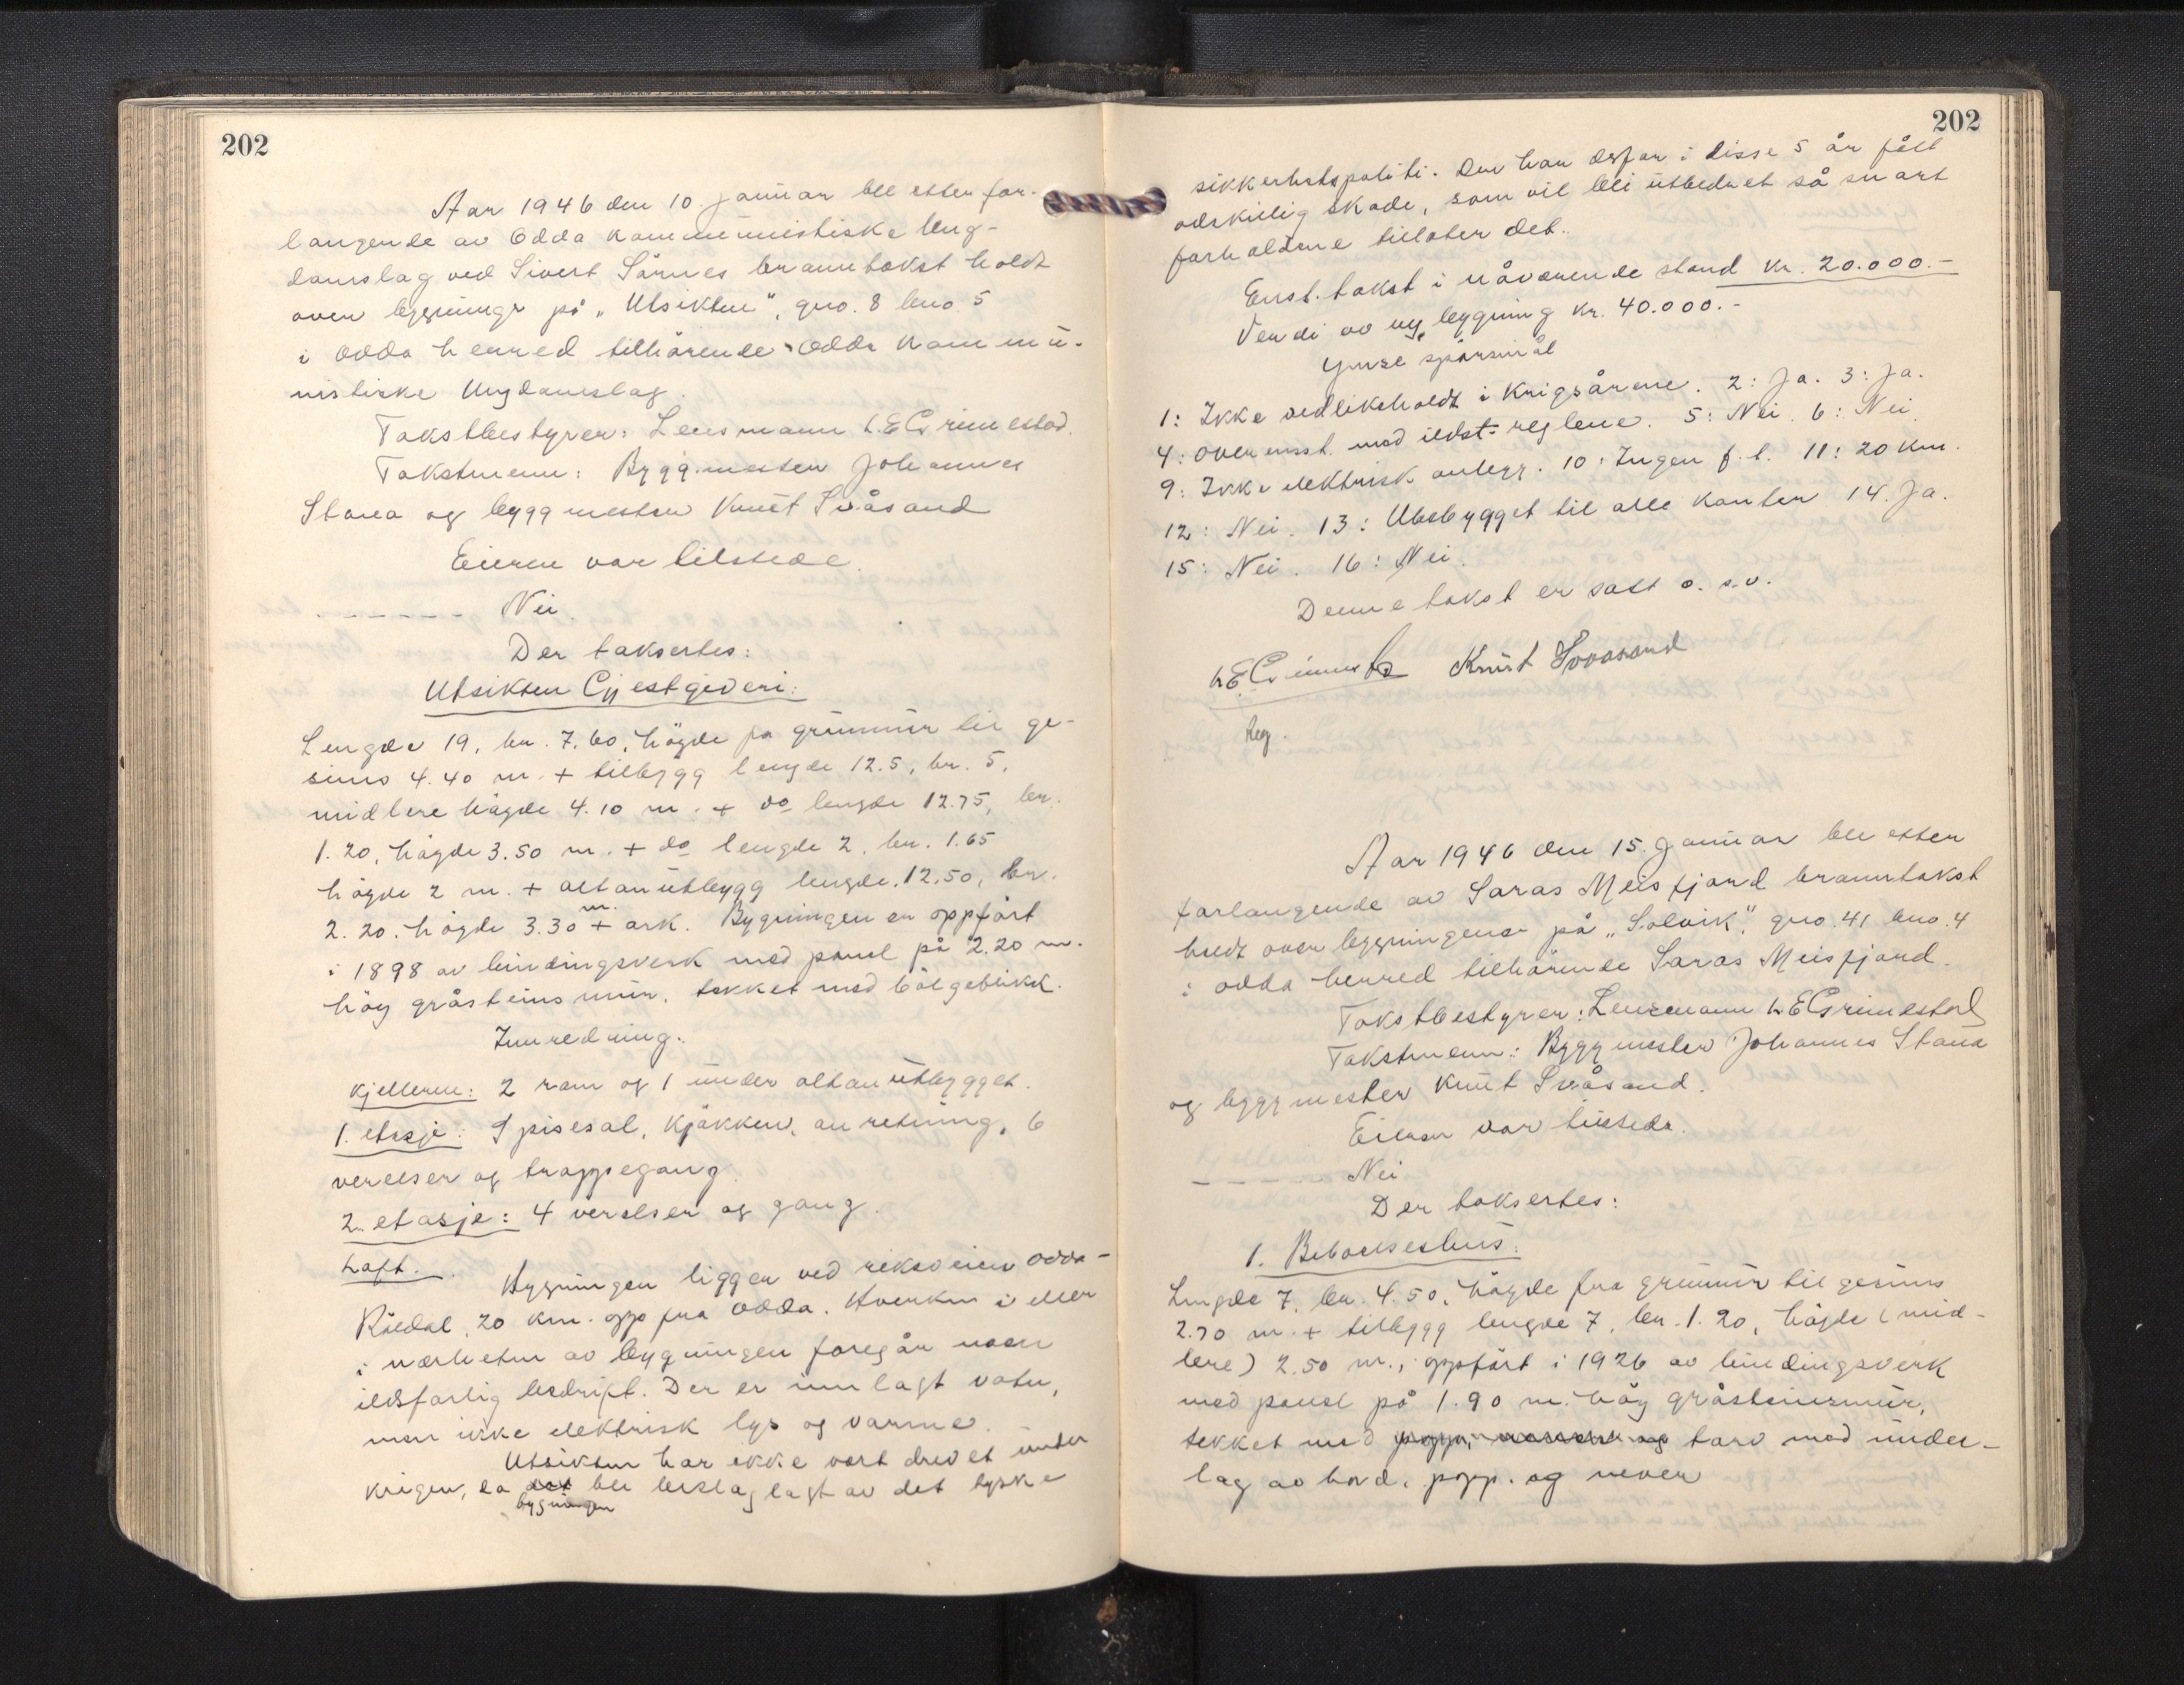 202
Aar 1946 den 10. januar ble etter for-
langende av Odda kommunistiske Ung-
domslag ved Sivert Sørnes branntakst holdt
over bygninge på „Utsikten", gno. 8 bno. 5
i Odda herred tilhørende Odda Kommu-
nistiske Ungdomslag.
Takstbestyrer: Lensmann L.E Grimestad.
Takstmenn: Byggmester Johannes
Stana og byggmester Knut Svåsand
Eieren var tilstede.
- - - - - - Nei.
Der taksertes:
Utsikten Gjestgiveri:
Lengde 19, br. 7.60, högde fra grunmur til ge-
sims 4.40 m. + tilbygg lengde 12.5, br. 5,
midlere högde 4.10 m. + do lengde 12.75, br.
1.20, högde 3.50 m. + do lengde 2, br. 1.65
högde 2 m. + altanutbygg lengde 12.50, br.
2.20. högde 3.30 m. + ark. Bygningen er oppført
i 1898 av bindingsverk med panel på 2.20 m.
høg gråsteinsmur, tekket med bölgeblikk.
Innredning:
Kjelleren: 2 rom og 1 under altanutbygget.
1. etasje: Spisesal, Kjøkken, anretning, 6
verelser og trappegang.
2. etasje: 4 verelser og gang.
Loft. Bygningen ligger ved riksveien Odda-
Röldal, 20 km. opp fra Odda. Hverken i eller
i nærheten av bygningen foregår noen
ildsfarlig bedrift. Der er innlagt vatn,
men ikke elektrisk lys og varme.
Utsikten har ikke vært drevet under
krigen, da det ble beslaglagt av det tyske
bygningen
202
sikkerhetspoliti. Den har derfor i disse 5 år fått
adskillig skade, som vil bli utbedret så snart
forholdene tillater det.
Enst. takst i nåværende stand kr. 20.000.-
Verdi av ny bygning kr. 40.000.-
Ymse spörsmål
1: Ikke vedlikeholdt i Krigsårene. 2: Ja. 3: Ja.
4: Overensst. med ildst. reglene. 5: Nei. 6: Nei.
9: Ikke elektrisk anlegg. 10: Ingen f.l. 11: 20 km.
12: Nei. 13: Ubebygget til alle kanter 14. Ja.
15: Nei. 16: Nei.
Denne takst er satt o.s.v.
L E Grimestad Knut Svaasand
Reg.
Aar 1946 den 15. januar ble etter
forlangende av Saras Meisfjord branntakst
holdt over bygningene på „Solvik", gno. 41 bno. 4
i Odda herred tilhørende Saras Meisfjord.
Takstbestyrer: Lensmann L E Grimestad
Takstmenn: Byggmester Johannes Stana
og byggmester Knut Svåsand.
Eieren var tilstede.
- - - - - Nei
Der taksertes:
1. Beboelseshus:
Lengde 7, br. 4.50, högde fra grunmur til gesims
2.70 m. + tilbygg lengde 7, br. 1.20, högde (mid-
lere) 2.50 m., oppført i 1926 av bindingsverk
med panel på 1.90 m. høg gråsteinsmur,
tekket med torv med under-
lag av bord, papp. og never